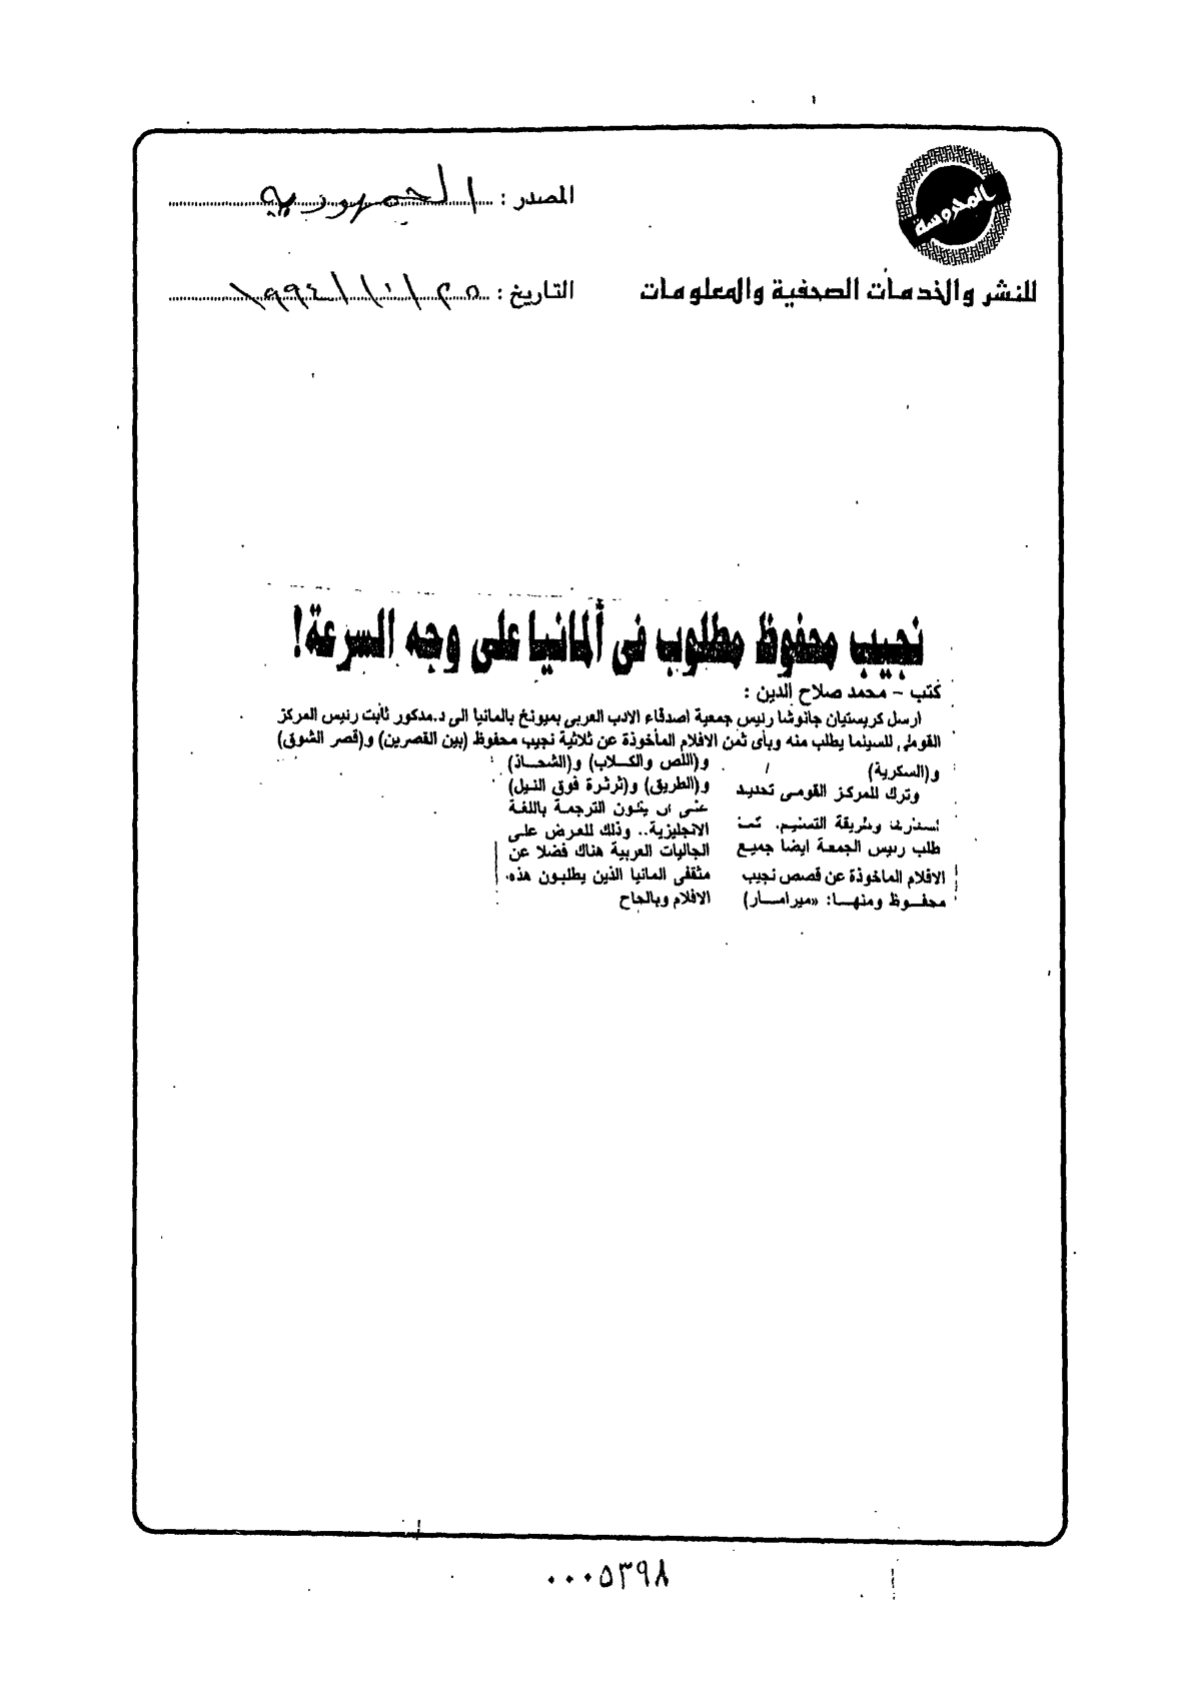 المحروسة
للنشر والخدمات الصحفية والمعلومات
المصدر : الجمهورية
التاريخ : ٢٥/١٠/١٩٩٤
نجيب محفوظ مطلوب فى ألمانيا على وجه السرعة!
كتب - محمد صلاح الدين :
ارسل كريستيان جانوشا رئيس جمعية اصدقاء الادب العربى بميونخ بالمانيا الى د.مدكور ثابت رئيس المركز
القومى للسينما يطلب منه وبأى ثمن الافلام المأخوذة عن ثلاثية نجيب محفوظ (بين القصرين) و(قصر الشوق)
و(السكرية)
وترك للمركز القومى تحديد
اسعارها وطريقة التسليم. كما
طلب رئيس الجمعة ايضا جميع
الافلام الماخوذة عن قصص نجيب
محفوظ ومنها: «ميرامار)
و(اللص والكلاب) و(الشحاذ)
و(الطريق) و(ثرثرة فوق النيل)
على ان يكون الترجمة باللغة
الانجليزية.. وذلك للعرض على
الجاليات العربية هناك فضلا عن
مثقفى المانيا الذين يطلبون هذه
الافلام وبالحاح
٠٠٠٥٣٩٨